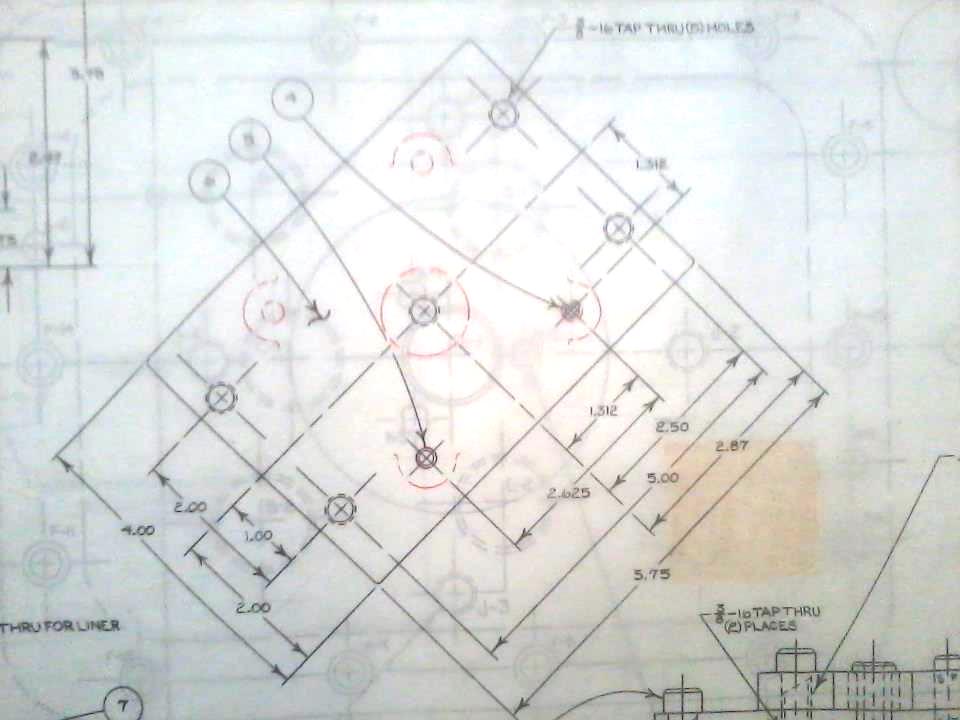 3/8-16 TAP THRU (5) HOLES
4
5
6
1.312
1.312
2.50
2.87
2.625
5.00
5.75
2.00
1.00
4.00
2.00
THRU FOR LINER
3/8-16 TAP THRU
(2) PLACES
7